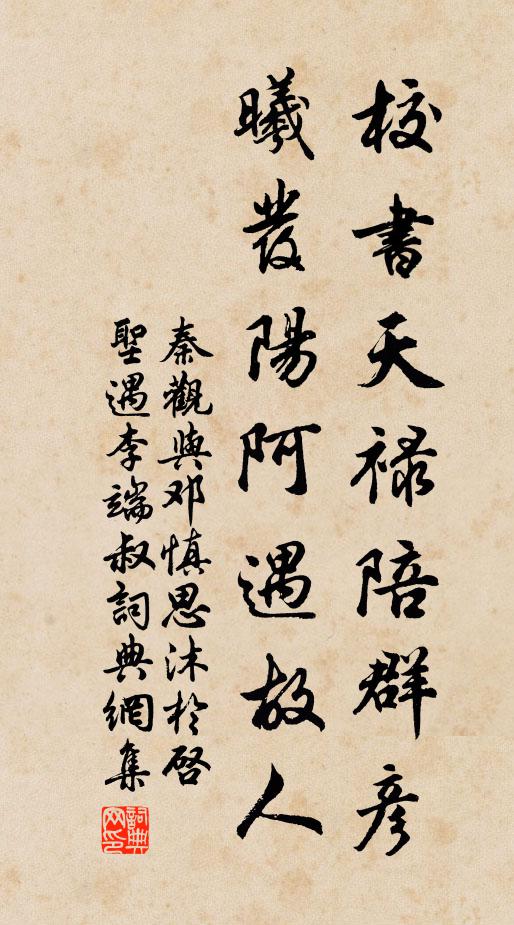 校書天禄陪群彥
曦發陽阿遇故人
秦觀與邓慎思沐於啓
聖遇李端叔詞典網集
詞典网印